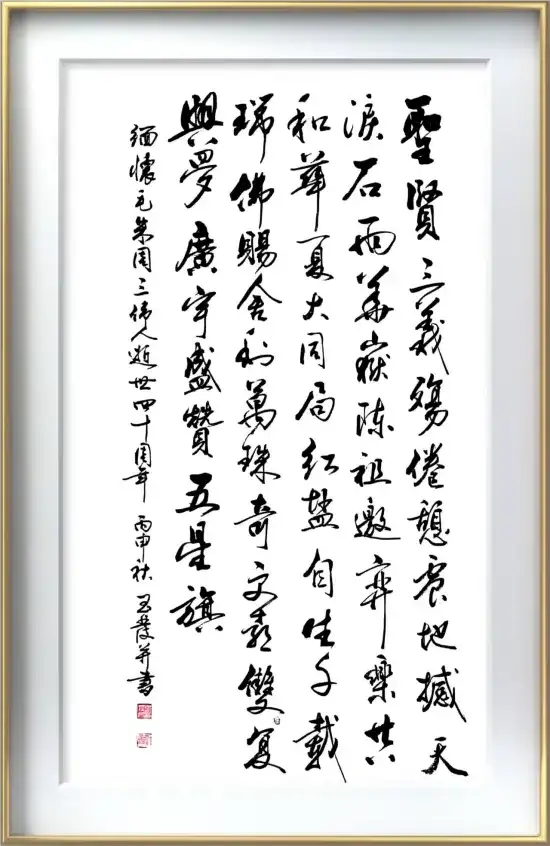 聖賢三義殤倦憩震地撼天
淚石雨華嶽陈祖邀弈樂共
和華夏大同局红盐自生千載
瑞佛賜舍利萬珠奇文雙复
興夢廣宇盛贊五星旗
缅懷毛朱周三偉人逝世四十周年 丙申秋 并書